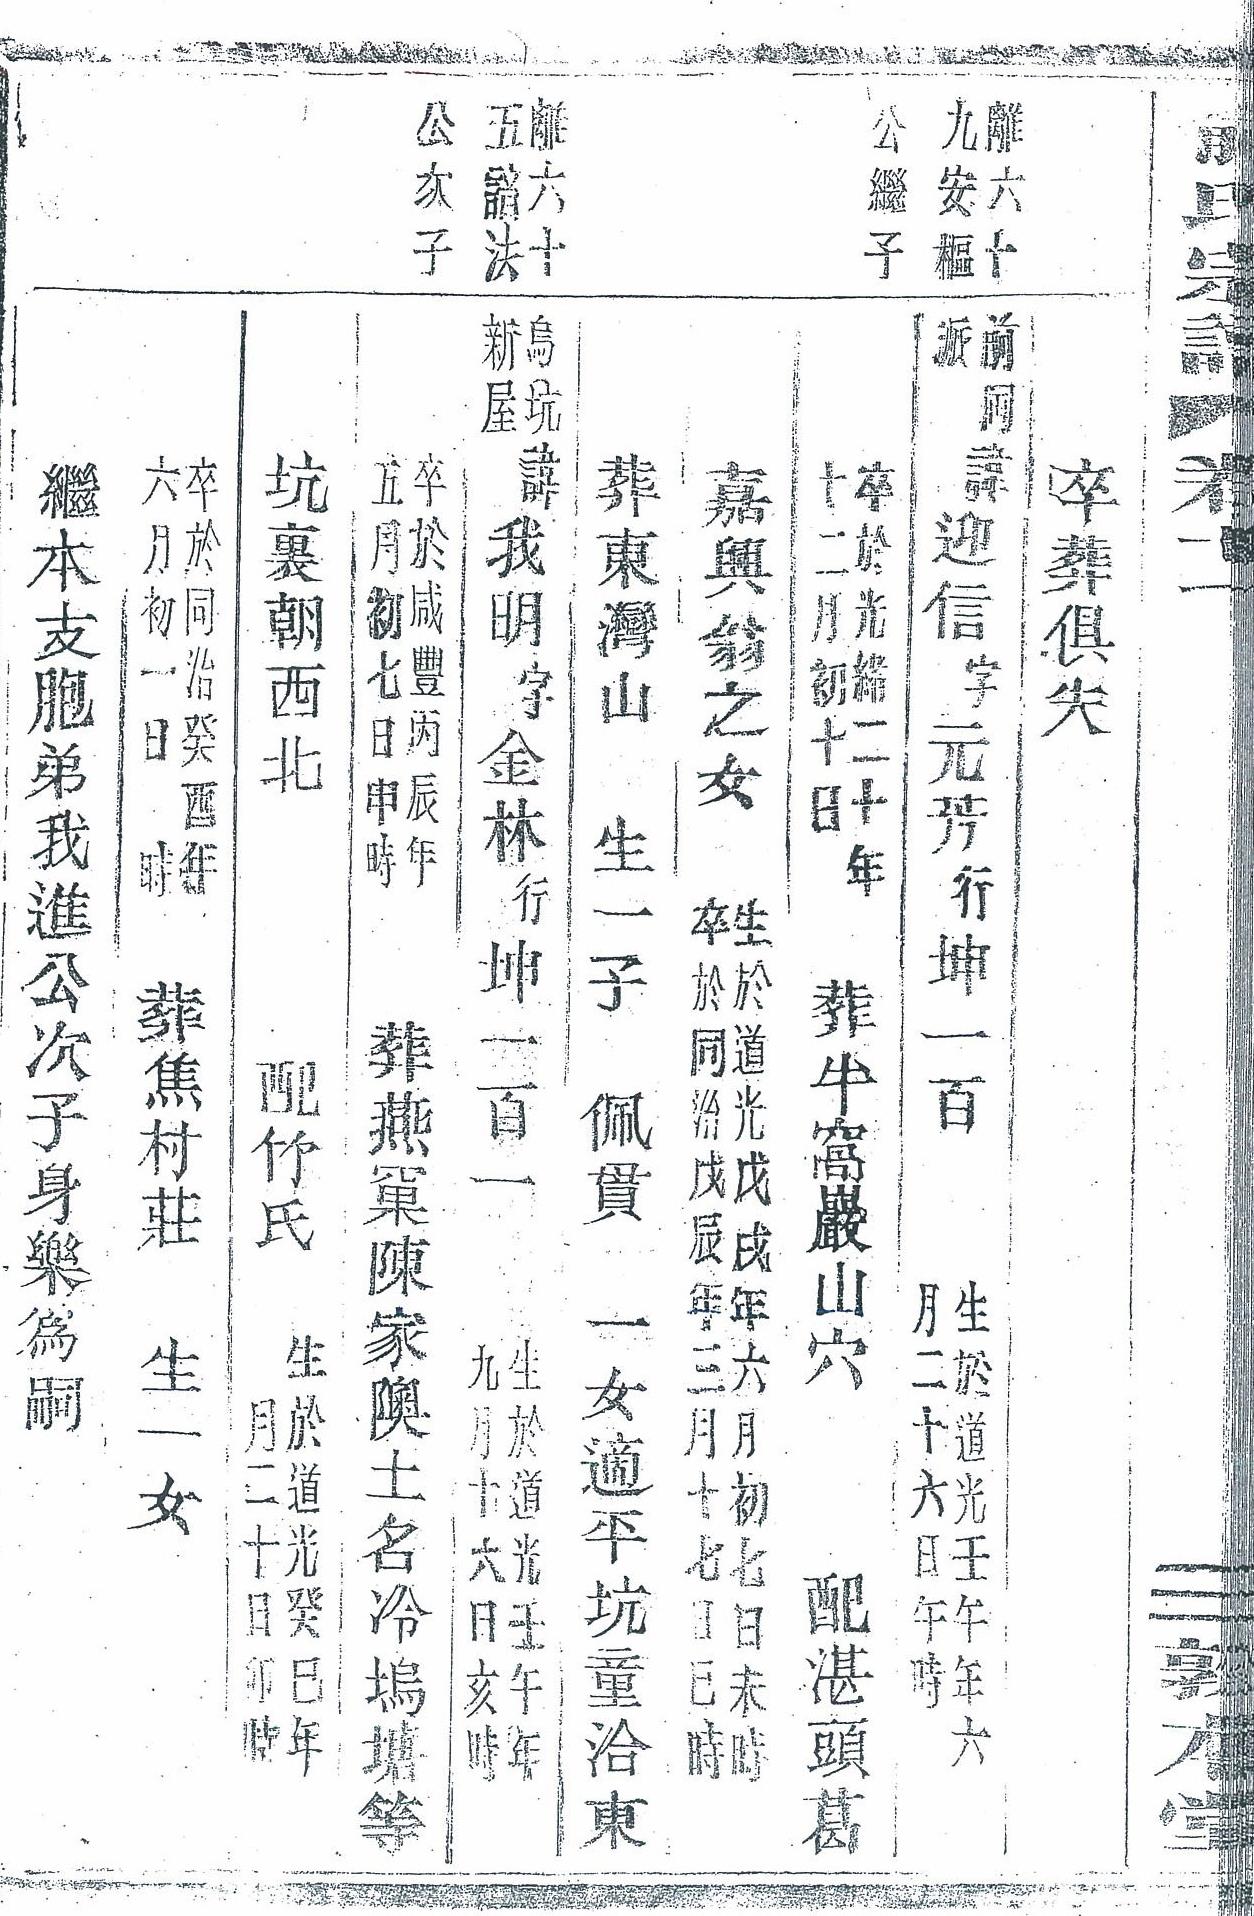 氏宗譜 卷二 敦本堂
卒葬俱失
離六十
九安樞
公繼子
前同
派
諱迎信字元芳行坤一百 生於道光壬午年六
月二十六日午時
卒於光緒二十年
十二月初十日 葬牛窩巖山穴 配湛頭葛
嘉興翁之女 生於道光戊戌年六月初七日未時
卒於同治戊辰年三月十七日巳時
葬東灣山 生一子 佩貫 一女適平坑童洽東
離六十
五諮法
公次子
烏坑
新屋
諱我明字金林行坤一百一 生於道光壬午年
九月十六日亥時
卒於咸豐丙辰年
五月初七日申時 葬燕窠陳家隩土名冷塢塘等
坑裏朝西北 配竹氏 生於道光癸巳年
月二十日卯時
卒於同治癸酉年
六月初一日 時 葬焦村莊 生一女
繼本支胞弟我進公次子身樂為嗣